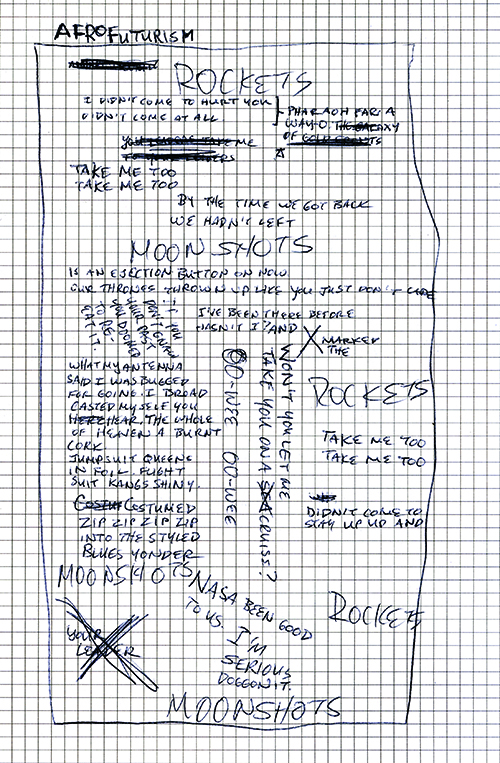 AFROFUTURISM
ROCKETS
I DIDN'T COME TO HURT YOU
DIDN'T COME AT ALL
PHARAOH FARI A
WAY-O. THE GALAXY
OF
ME
TAKE ME TOO
TAKE ME TOO
BY THE TIME WE GOT BACK
WE HADN'T LEFT
MOONSHOTS
IS AN EJECTION BUTTON ON NOW
OUR THRONES THROWN UP LIKE YOU JUST DON'T CARE
IF YOU
DON'T KNOW
YOUR PAST
YOU DOOMED
TO RE-
EAT IT
I'VE BEEN THERE BEFORE
HASN'T I? AND
X MARKED
THE
ROCKETS
WHAT MY ANTENNA
SAID I WAS BUGGED
FOR GOING. I BROAD
CASTED MYSELF YOU
HERE HEAR, THE WHOLE
OF HEAVEN A BURNT
CORK
JUMPSUIT QUEENS
IN FOIL. FLIGHT
SUIT KANGS SHINY.
COSTUMED
ZIP ZIP ZIP ZIP
INTO THE STYLED
BLUES YONDER
OO-WEE OO-WEE
WON'T YOU LET ME
TAKE YOU ON A CRUISS?
TAKE ME TOO
TAKE ME TOO
DIDN'T COME TO
STAY UP UP AND
MOONSHOTS
NASA BEEN GOOD
TO US. I'M
SERIOUS
DOGGONIT.
ROCKETS
YOUR
LEADER
MOONSHOTS